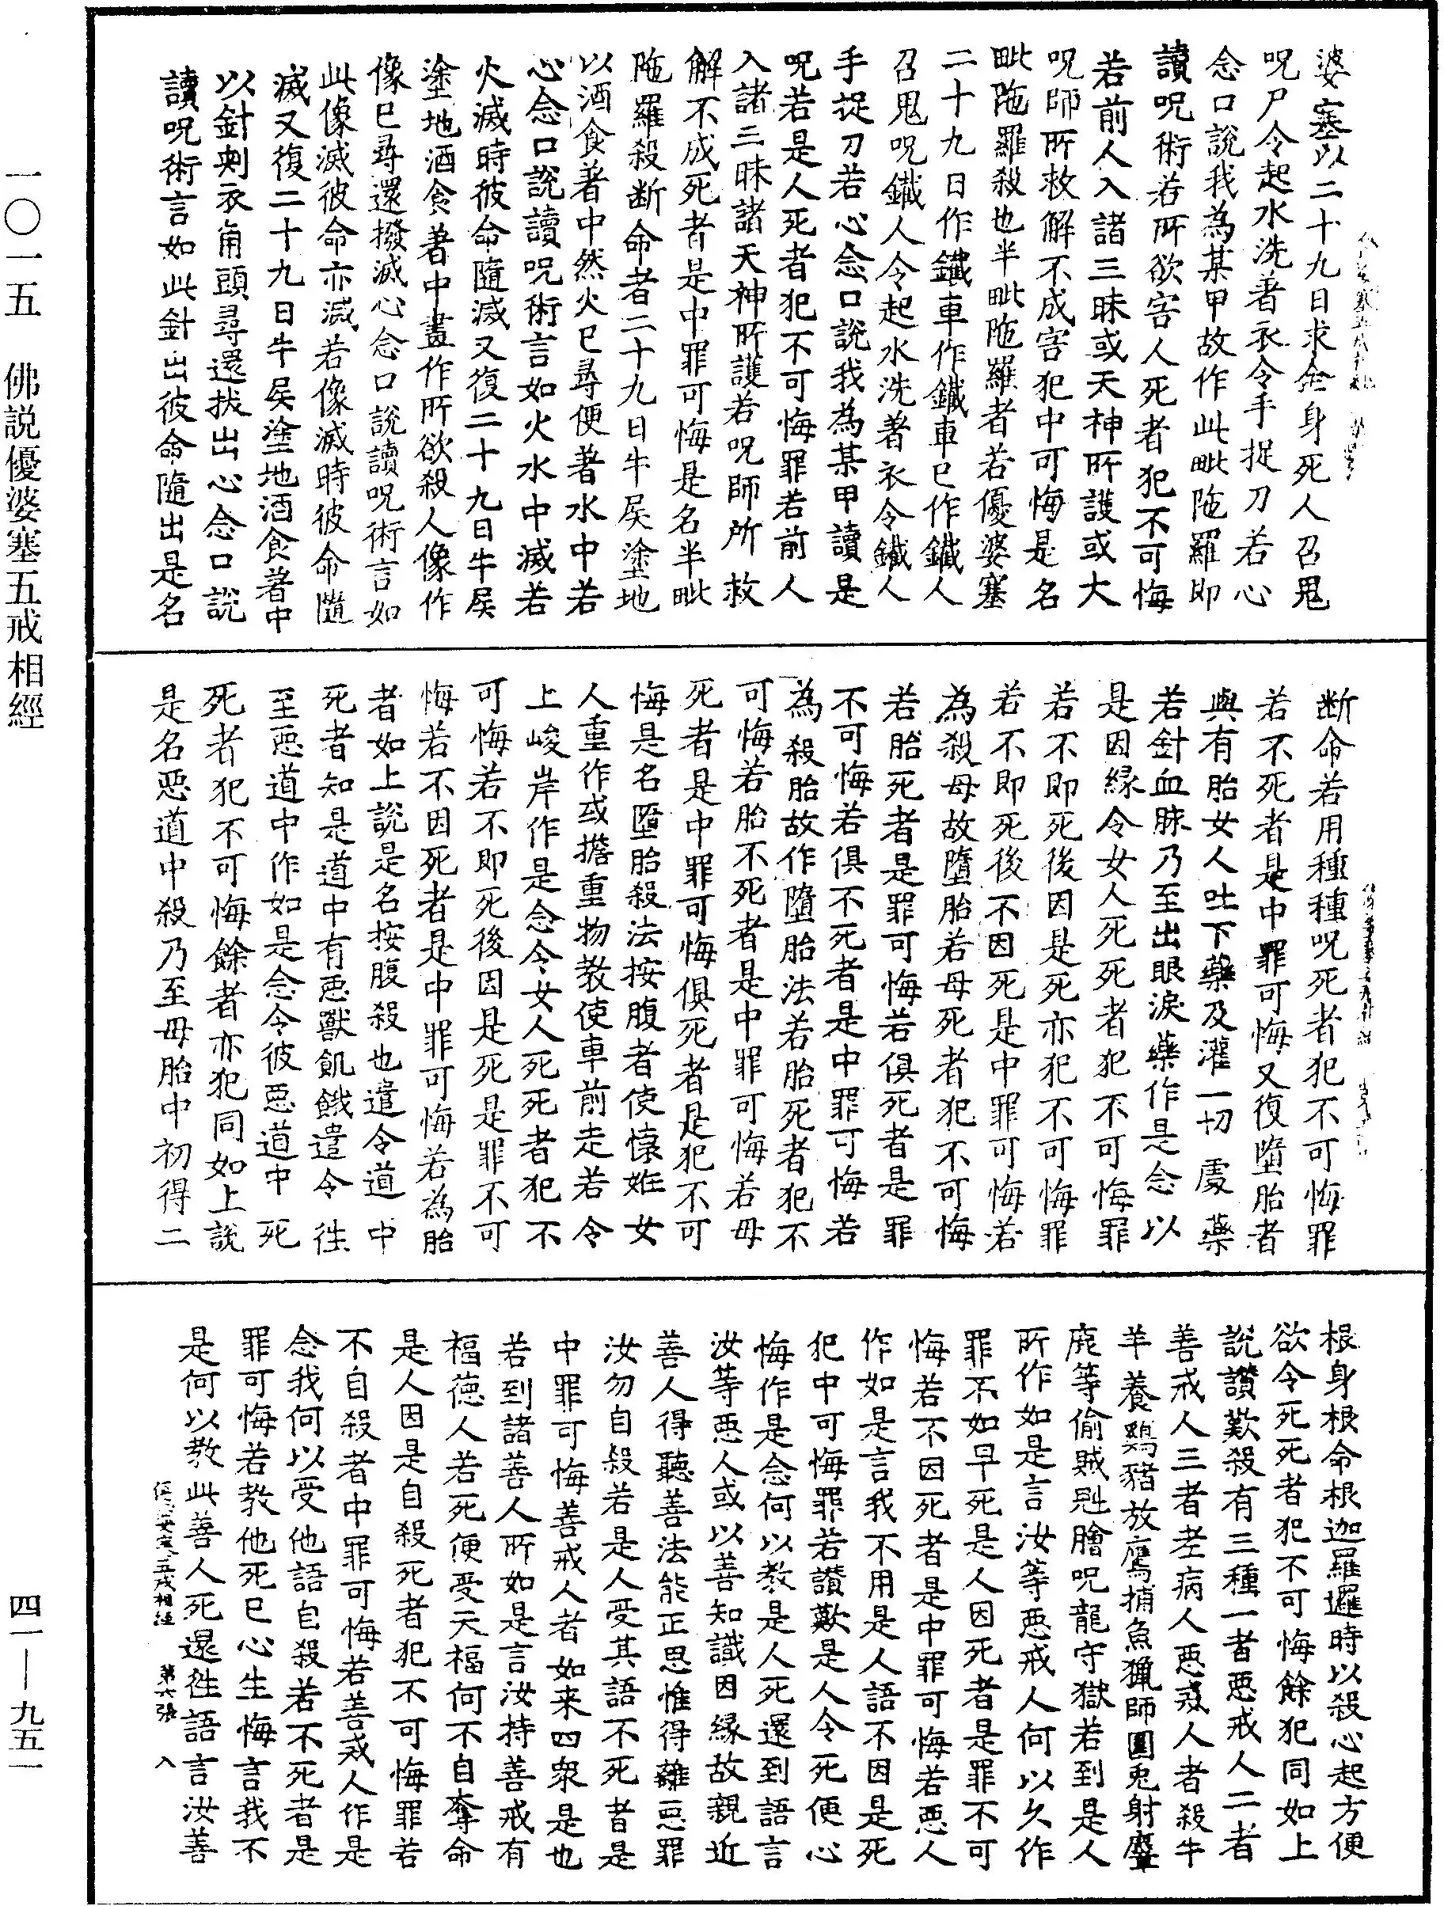 婆塞以二十九日求全身死人召鬼
呪尸令起水洗著衣令手捉刀若心
念口說我為某甲故作此毗陁羅即
讀呪術若所欲害人死者犯不可悔
若前人入諸三昧或天神所護或大
呪師所救解不成害犯中可悔是名
毗陁羅殺也半毗陁羅者若優婆塞
二十九日作鐵車作鐵車已作鐵人
召鬼呪鐵人令起水洗著衣令鐵人
手捉刀若心念口說我為某甲讀是
呪若是人死者犯不可悔罪若前人
入諸三昧諸天神所護若呪師所救
解不成死者是中罪可悔是名半毗
陁羅殺断命者二十九日牛屎塗地
以酒食著中然火已尋便著水中若
心念口說讀呪術言如火水中滅若
火滅時彼命隨滅又復二十九日牛屎
塗地酒食著中畫作所欲殺人像作
像已尋還撥滅心念口說讀呪術言如
此像滅彼命亦滅若像滅時彼命隨
滅又復二十九日牛屎塗地酒食著中
以針刺衣角頭尋還拔出心念口說
讀呪術言如此針出彼命隨出是名
断命若用種種呪死者犯不可悔罪
若不死者是中罪可悔又復墮胎者
與有胎女人吐下藥及灌一切處藥
若針血脉乃至出眼淚藥作是念以
是因緣令女人死死者犯不可悔罪
若不即死後因是死亦犯不可悔罪
若不即死後不因死是中罪可悔若
為殺母故墮胎若母死者犯不可悔
若胎死者是罪可悔若俱死者是罪
不可悔若俱不死者是中罪可悔若
為殺胎故作墮胎法若胎死者犯不
可悔若胎不死者是中罪可悔若母
死者是中罪可悔俱死者是犯不可
悔是名墮胎殺法按腹者使懷姙女
人重作或擔重物教使車前走若令
上峻岸作是念令女人死死者犯不
可悔若不即死後因是死是罪不可
悔若不因死者是中罪可悔若為胎
者如上說是名按腹殺也遣令道中
死者知是道中有惡獸飢餓遣令徃
至惡道中作如是念令彼惡道中死
死者犯不可悔餘者亦犯同如上說
是名惡道中殺乃至母胎中初得二
根身根命根迦羅邏時以殺心起方便
欲令死死者犯不可悔餘犯同如上
說讚歎殺有三種一者惡戒人二者
善戒人三者老病人惡戒人者殺牛
羊養鷄豬放鷹捕魚獵師圍兎射麞
鹿等偷賊魁膾呪龍守獄若到是人
所作如是言汝等惡戒人何以久作
罪不如早死是人因死者是罪不可
悔若不因死者是中罪可悔若惡人
作如是言我不用是人語不因是死
犯中可悔罪若讚歎是人令死便心
悔作是念何以教是人死還到語言
汝等惡人或以善知識因緣故親近
善人得聽善法能正思惟得離惡罪
汝勿自殺若是人受其語不死者是
中罪可悔善戒人者如来四衆是也
若到諸善人所如是言汝持善戒有
福德人若死便受天福何不自奪命
是人因是自殺死者犯不可悔罪若
不自殺者中罪可悔若善戒人作是
念我何以受他語自殺若不死者是
罪可悔若教他死已心生悔言我不
是何以教此善人死還徃語言汝善
第六張
一〇一五 佛説優婆塞五戒相經
四一—九五一